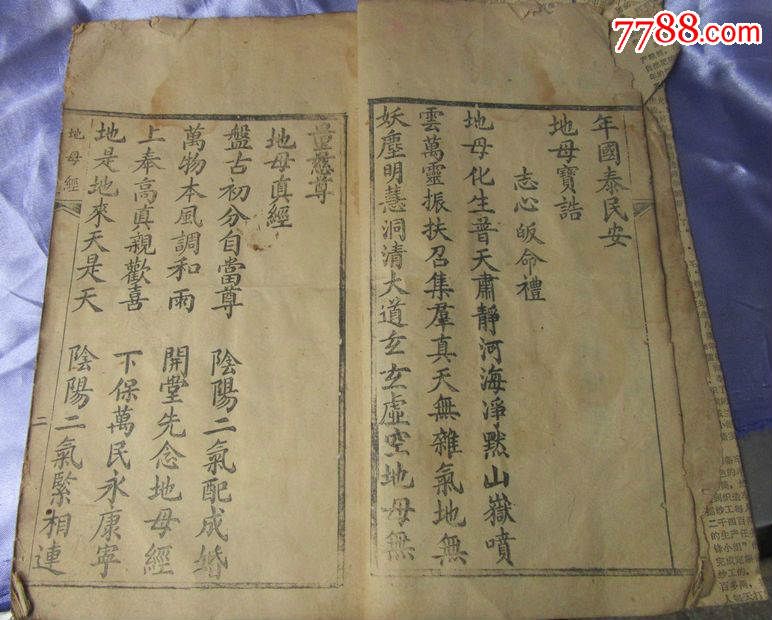 7788.com
年國泰民安
地母寶誥
志心皈命禮
地母化生普天肅靜河海淨默山嶽噴
雲萬靈振扶召集羣真天無雜氣地無
妖塵明慧洞清大道玄玄虛空地母無
量慈尊
地母真經
盤古初分自當尊 陰陽二氣配成婚
萬物本風調和雨 開堂先念地母經
上奉高真親歡喜 下保萬民永康寧
地是地來天是天 陰陽二氣緊相連
地母經
二